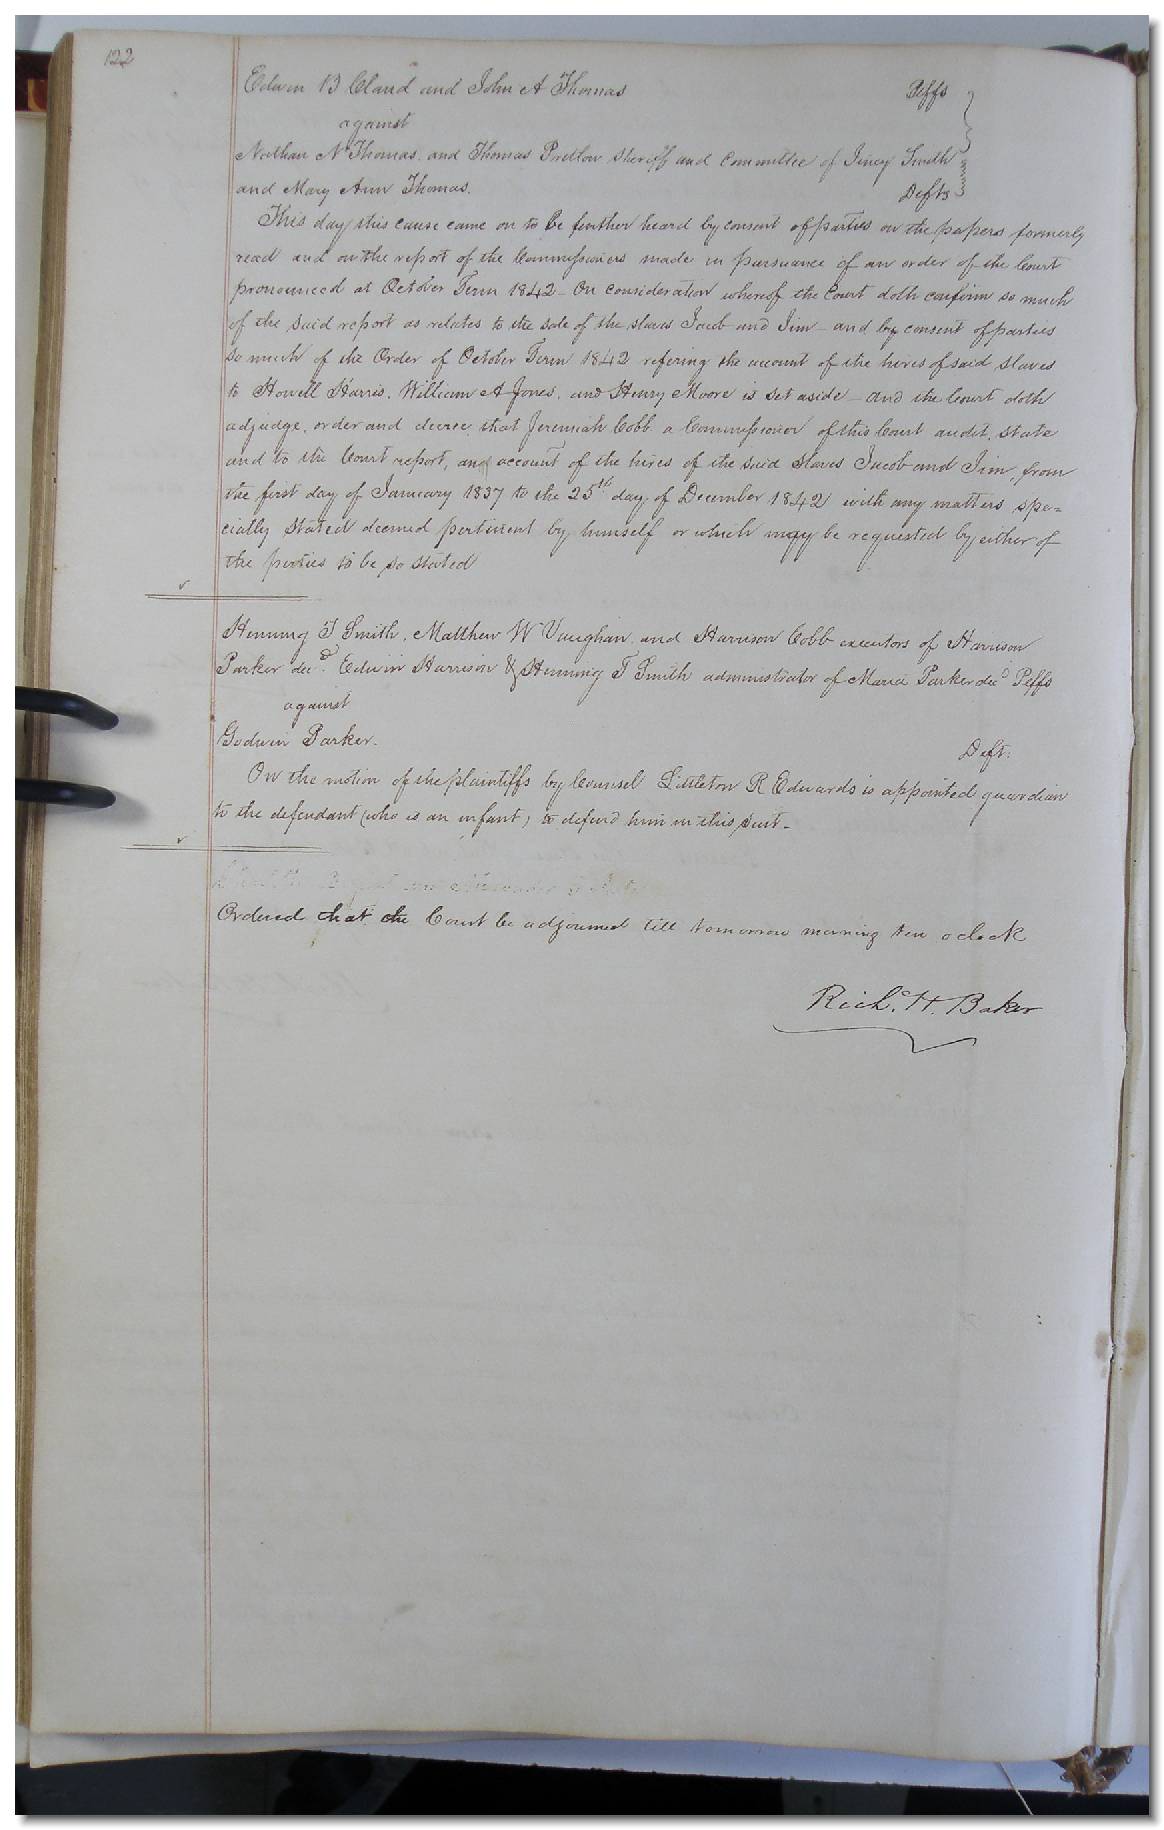 122
Edwin B Claud and John A Thomas Plffs
against
Nathan N Thomas and Thomas Pretlow Sheriff and Committee of Jincy Smith
and Mary Ann Thomas. Defts
This day this cause came on to be further heard by consent of parties on the papers formerly
read and on the report of the Commissioners made in pursuance of an order of the Court
pronounced at October Term 1842 – On consideration whereof the Court doth confirm so much
of the said report as relates to the sale of the slaves Jacob and Jim – and by consent of parties
so much of the Order of October Term 1842 refering the account of the hires of said slaves
to Howell Harris, William A Jones, and Henry Moore is set aside – and the Court doth
adjudge, order and decree that Jeremiah Cobb a Commissioner of this Court audit, state
and to the Court report, and account of the hires of the said slaves Jacob and Jim, from
the first day of January 1837 to the 25th day of December 1842 with any matters spe=
cially stated deemed pertinent by himself or which may be requested by either of
the parties to be so stated
Henning T Smith, Matthew W Vaughan and Harrison Cobb executors of Harrison
Parker decd. Edwin Harrison & Henning T Smith administrator of Maria Parker decd Plffs
against
Godwin Parker. Deft.
On the motion of the plaintiffs by Counsel Littleton R Edwards is appointed guardian
to the defendant (who is an infant) to defend him in this suit –
Ordered that the Court be adjourned till tomorrow morning ten oclock
Richd. H. Baker